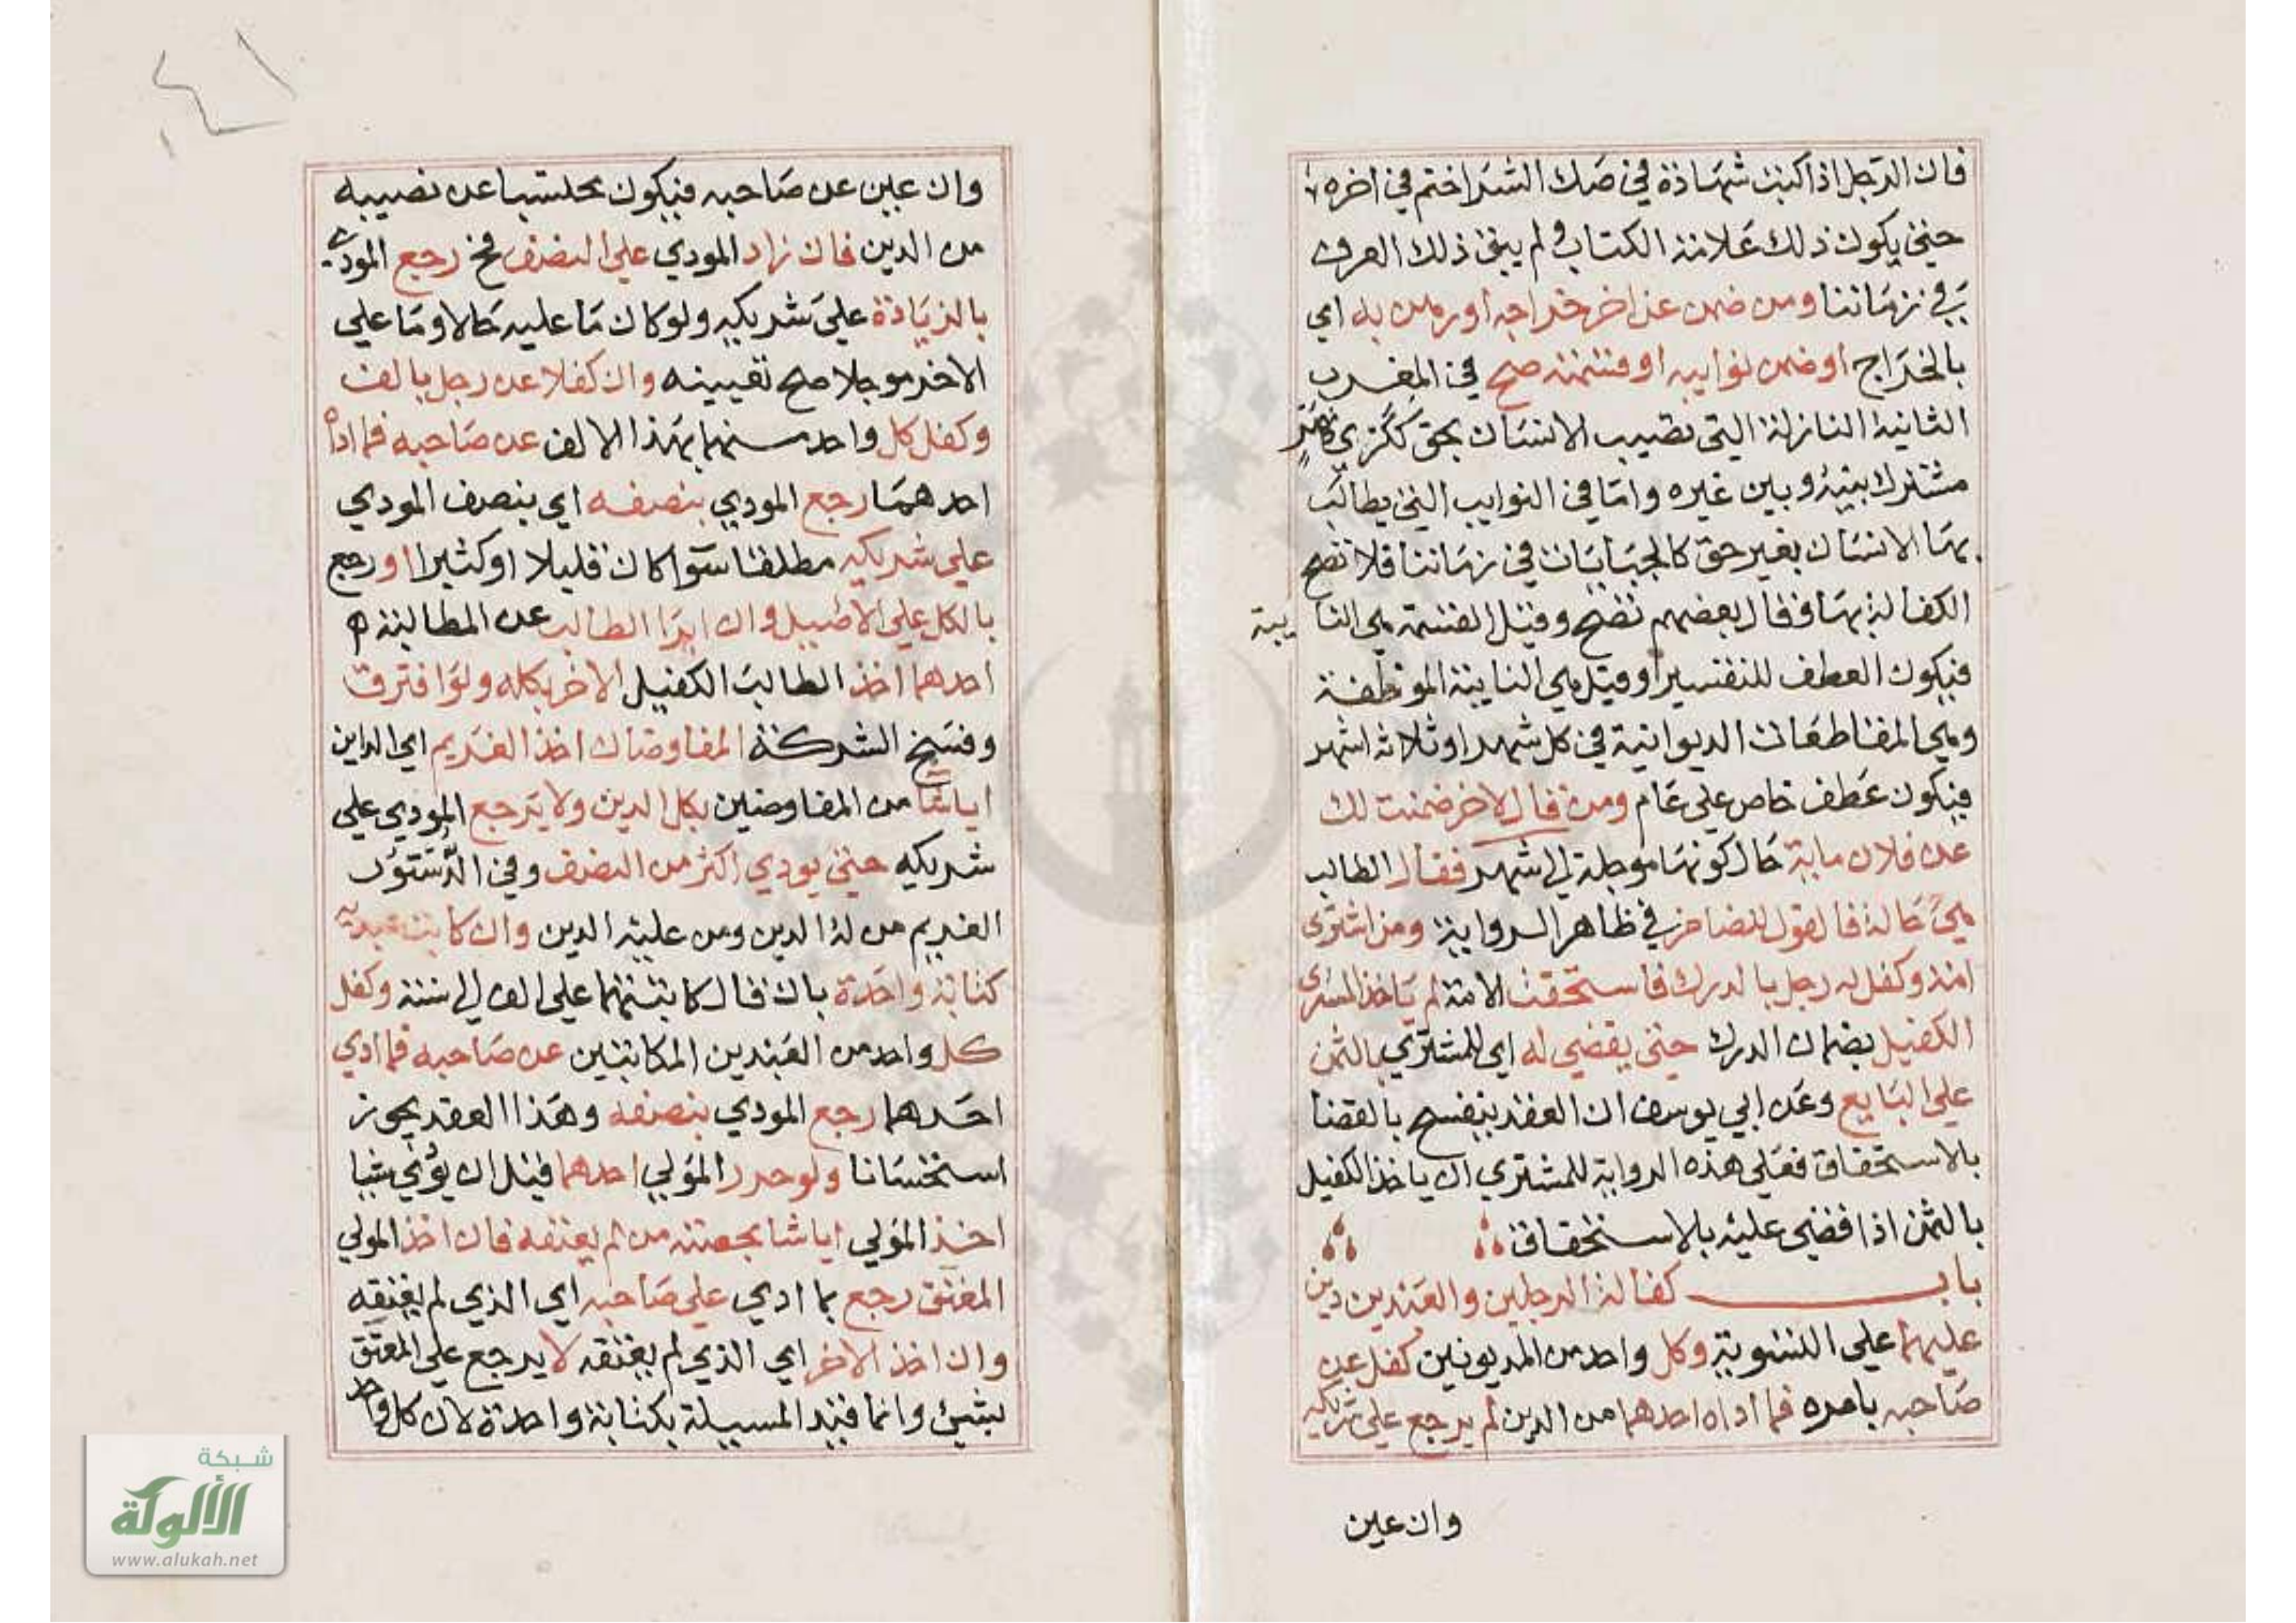 فان الرجل اذا كتبت شهادة في صك الشرا ختم في اخره
حتي يكون ذلك علامة الكتاب ولم يبق ذلك العرف
في زماننا ومن ضمن عن اخر خراجه او رهن به اي
بالخراج او ضمن نوايبه او قسمته صح في المغرب
الثانية النازلة التي تصيب الانسان بحق ككري نهر
مشترك بينه وبين غيره واما في النوايب التي يطالب
بها الانسان بغير حق كالجبايات في زماننا فلا تصح
الكفالة بها وقال بعضهم تصح وقيل القسمة هي النايبة
فيكون العطف للتفسير او قيل هي النايبة الموظفة
وهي المقاطعات الديوانية في كل شهر او ثلاثة اشهر
فيكون عطف خاص علي عام ومن قال لاخر ضمنت لك
عن فلان ماية حال كونها موجلة الي شهر فقال الطالب
هي حالة فالقول للضامن في ظاهر الرواية ومن اشتري
امة وكفل له رجل بالدرك فاستحقت الامة لم ياخذ المشتري
الكفيل بضمان الدرك حتي يقضي له اي للمشتري بالثمن
علي البايع وعن ابي يوسف ان العقد ينفسخ بالقضا
بالاستحقاق فعلي هذه الرواية للمشتري ان ياخذ الكفيل
بالثمن اذا قضي عليه بالاستحقاق
باب كفالة الرجلين والعبدين دين
عليهما علي التسوية وكل واحد من المديونين كفل عن
صاحبه بامره فما اداه احدهما من الدين لم يرجع علي شريكه
وان عين
٤١
وان عين عن صاحبه فيكون محتسبا عن نصيبه
من الدين فان زاد المودي علي النصف فح رجع المودي
بالزيادة علي شريكه ولو كان ما عليه حالا وما علي
الاخر موجلا صح تعيينه وان كفلا عن رجل بالف
وكفل كل واحد منهما بهذا الالف عن صاحبه فما اداه
احدهما رجع المودي بنصفه اي بنصف المودي
علي شريكه مطلقا سوا كان قليلا او كثيرا او رجع
بالكل علي الاصيل وان ابرا الطالب عن المطالبة
احدهما اخذ الطالب الكفيل الاخر بكله ولو افترق
وفسخ الشركة المفاوضان اخذ الغريم اي الداين
ايا شا من المفاوضين بكل الدين ولا يرجع المودي علي
شريكه حتي يودي اكثر من النصف وفي الدستور
الغريم من له الدين ومن عليه الدين وان كاتب عبديه
كتابة واحدة بان قال كاتبتهما علي الف الي سنة وكفل
كل واحد من العبدين المكاتبين عن صاحبه فما ادي
احدهما رجع المودي بنصفه وهذا العقد يجوز
استحسانا ولو حرر المولي احدهما قبل ان يؤدي شيا
اخذ المولي ايا شا بحصته من لم يعتقه فان اخذ المولي
المعتق رجع بما ادي علي صاحبه اي الذي لم يعتقه
وان اخذ الاخر اي الذي لم يعتقه لا يرجع علي المعتق
بشيئ وانما قيد المسيلة بكتابة واحدة لان كل واحد
شبكة
الألوكة
www.alukah.net